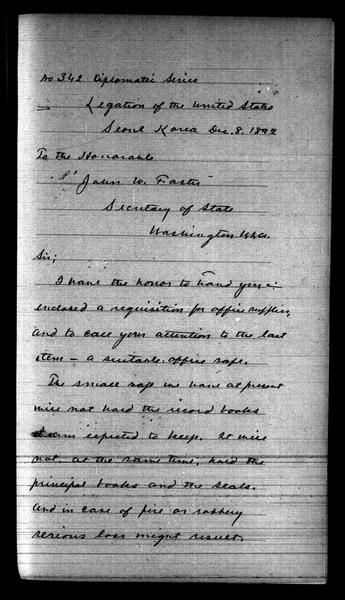 No 342 Diplomatic Series
Legation of the United States
Seoul Korea Dec. 8. 1892
To the Honorable
John W. Foster
Secretary of State
Washington U.S.A.
Sir;
I have the honor to hand you
enclosed a requisition for office supplies,
and to call your attention to the last
item – a suitable office safe.
The small safe we have at present
will not hold the record books
I am expected to keep. It will
not, at the same time, hold the
principal books and the seals.
And in case of fire or robbery
serious loss might result.